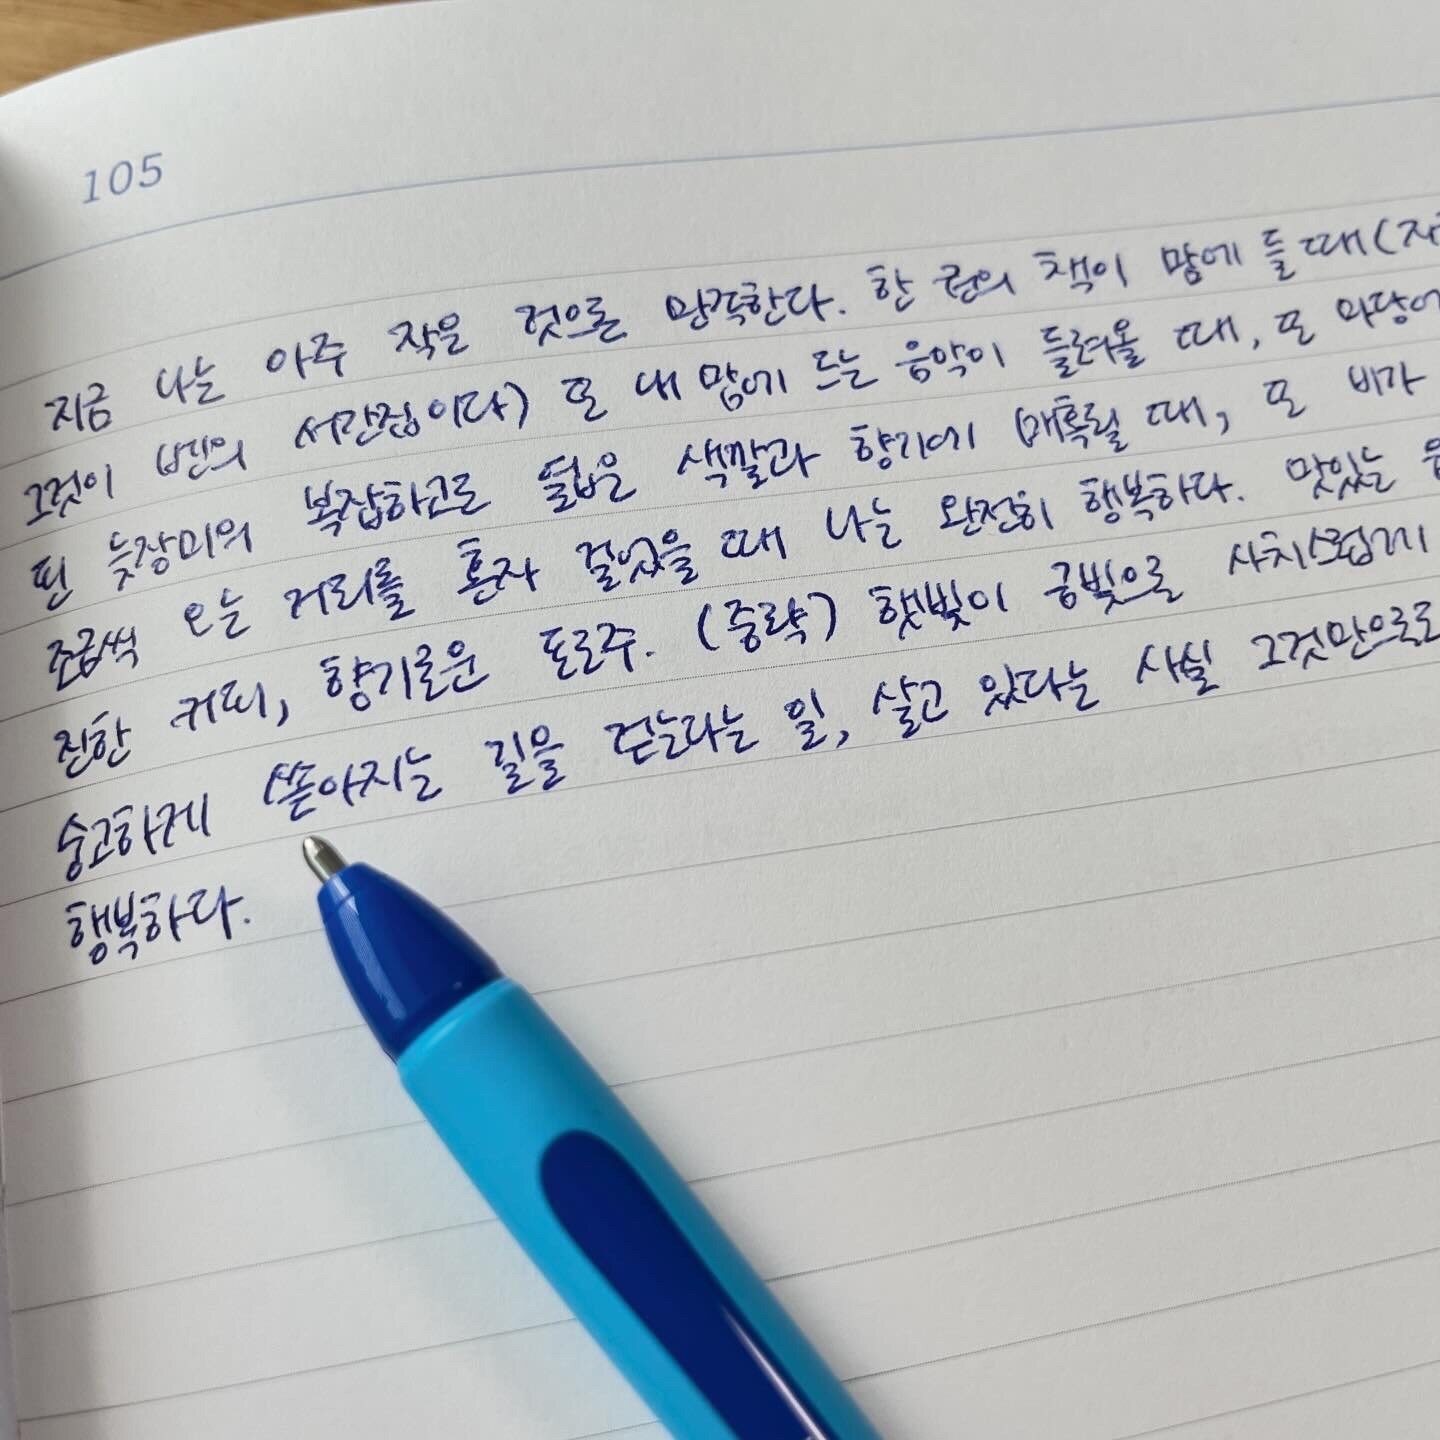 105
지금 나는 아주 작은 것으로 만족한다. 한 권의 책이 맘에 들 때(지
그것이 벤의 서간집이다) 또 내 맘에 드는 음악이 들려올 때, 또 마당에
핀 늦장미의 복잡하고도 엷은 색깔과 향기에 매혹될 때, 또 비가
조금씩 오는 거리를 혼자 걸었을 때 나는 완전히 행복하다. 맛있는 음
진한 커피, 향기로운 포도주. (중략) 햇빛이 금빛으로 사치스럽게
숭고하게 쏟아지는 길을 걷는다는 일, 살고 있다는 사실 그것만으로도
행복하다.